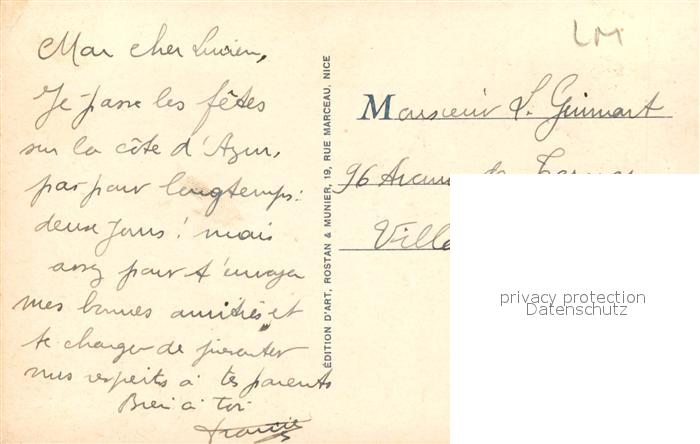 Mon cher Lucien,
Je passe les fêtes
sur la côte d'Azur,
pas pour longtemps :
deux jours ! mais
assez pour t'envoyer
mes bonnes amitiés et
te charger de présenter
mes respects à tes parents
Bien à toi
ÉDITION D'ART, ROSTAN & MUNIER, 19, RUE MARCEAU, NICE
LM
Monsieur L. Guimart
96 Avenue
Ville
privacy protection
Datenschutz